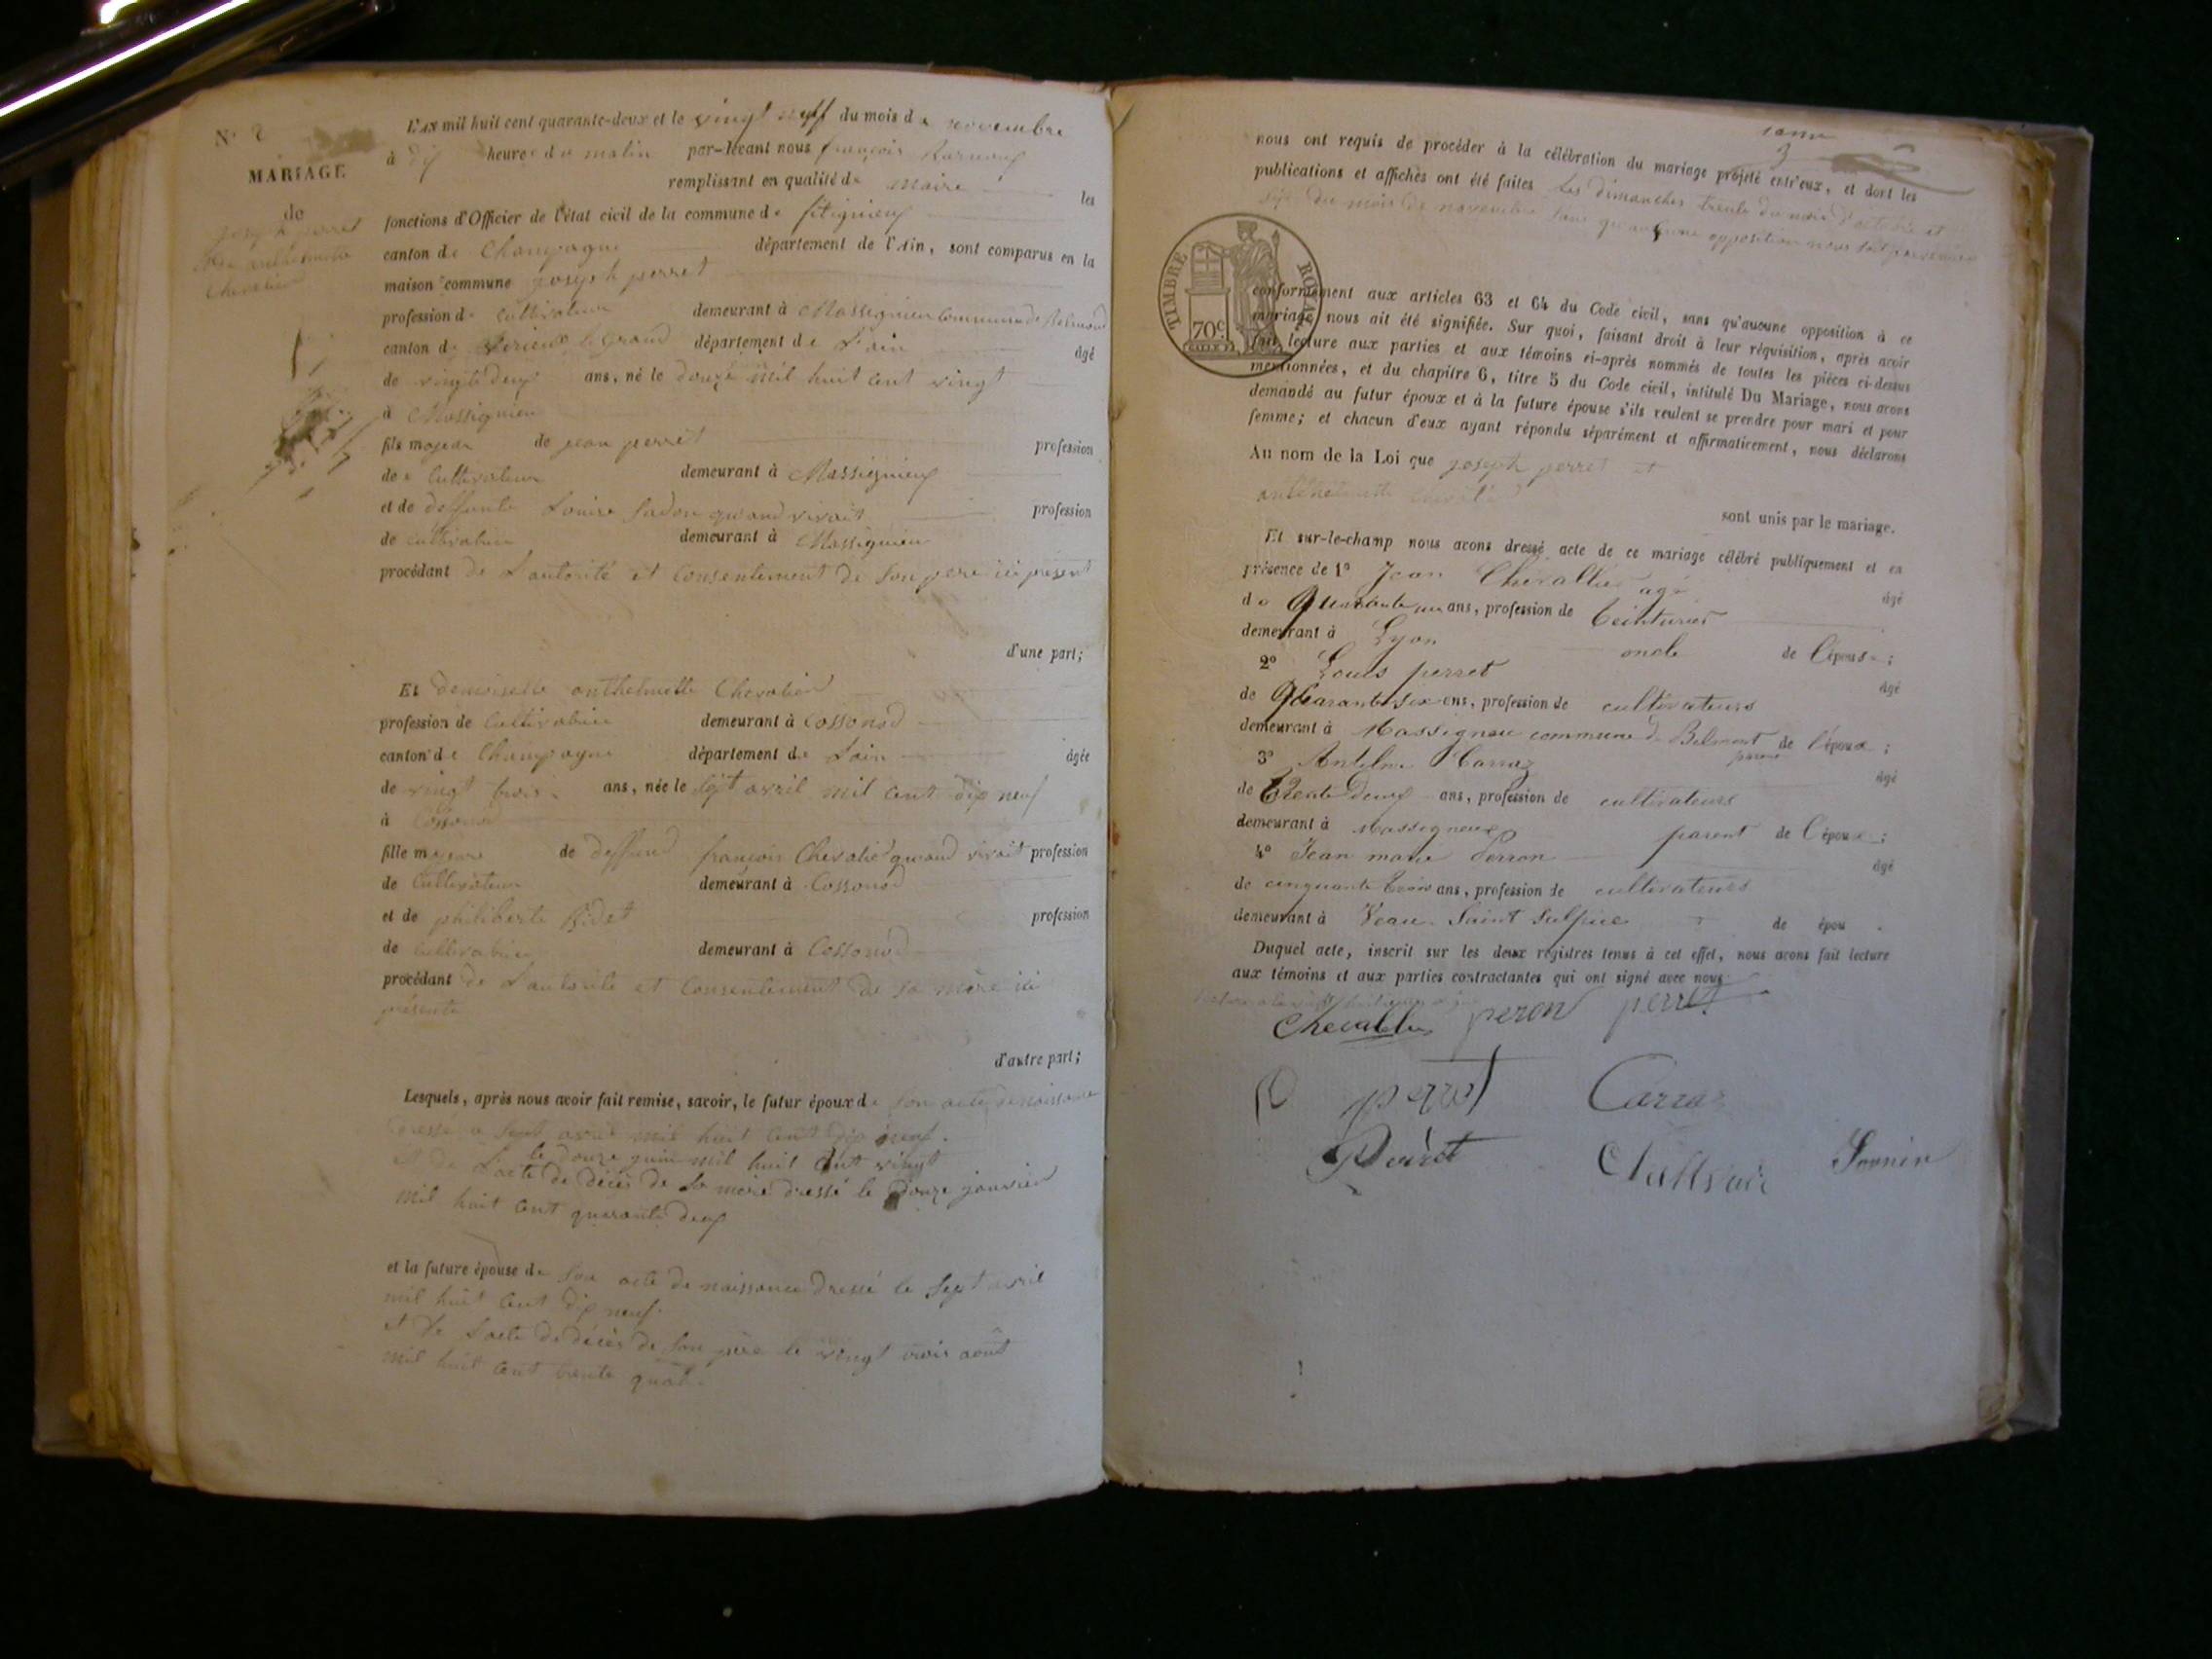 N° 2
MARIAGE
de
joseph perret
Chevalier
L'AN mil huit cent quarante-deux et le vingt neuf du mois de novembre
à dix heures du matin par-devant nous françois
remplissant en qualité de maire les
fonctions d'Officier de l'état civil de la commune de
canton de Champagne département de l'Ain, sont comparus en la
maison commune joseph perret
profession de cultivateur demeurant à Massignieu Commune de Belmond
canton de Virieux le grand département de L'ain âgé
de vingt deux ans, né le douze mil huit cent vingt
à Massignieu
fils majeur de jean perret profession
de cultivateur demeurant à Massignieux
et de deffunte Louise quand vivait profession
de cultivatrice demeurant à Massignieu
procédant de L'autorité et Consentement de Son pere ici présent
d'une part;
Et demoiselle anthelmette Chevalier
profession de Cultivatrice demeurant à Cossonod
canton de Champagne département de Lain âgée
de vingt trois ans, née le Sept avril mil cent dix neuf
à Cossonod
fille majeure de deffund françois Chevalier quand vivait profession
de Cultivateur demeurant à Cossonod
et de philiberte profession
de Cultivatrice demeurant à Cossonod
procédant de L'autorité et Consentement de Sa mère ici
présente
d'autre part;
Lesquels, après nous avoir fait remise, savoir, le futur époux de son acte de naissance
dressé le Sept avril mil huit Cent dix neuf.
le douze juin mil huit Cent vingt
et de L'acte de décès de Sa mère dressé le douze janvier
mil huit Cent quarante deux
et la future épouse de Son acte de naissance dressé le Sept avril
mil huit Cent dix neuf.
et de L'acte de décès de Son père le vingt trois août
mil huit Cent trente quat.
nous ont requis de procéder à la célébration du mariage projeté entr'eux, et dont les
publications et affiches ont été faites Les dimanches trente du mois d'octobre et
du mois de novembre Sans qu'aucune opposition nous soit parvenue
TIMBRE ROYAL
70c
conformément aux articles 63 et 64 du Code civil, sans qu'aucune opposition à ce
mariage nous ait été signifiée. Sur quoi, faisant droit à leur réquisition, après avoir
fait lecture aux parties et aux témoins ci-après nommés de toutes les pièces ci-dessus
mentionnées, et du chapitre 6, titre 5 du Code civil, intitulé Du Mariage, nous avons
demandé au futur époux et à la future épouse s'ils veulent se prendre pour mari et pour
femme; et chacun d'eux ayant répondu séparément et affirmativement, nous déclarons
Au nom de la Loi que joseph perret et
anthelmette Chevalier
sont unis par le mariage.
Et sur-le-champ nous avons dressé acte de ce mariage célébré publiquement et en
présence de 1° Jean Chevallier agé âgé
de Quarante un ans, profession de teinturier
demeurant à Lyon oncle de l'épouse;
2° Louis perret âgé
de Quarante six ans, profession de cultivateurs
demeurant à Massigneu commune de Belmont parent de l'époux;
3° Antelme Carraz âgé
de trente Deux ans, profession de cultivateurs
demeurant à Massigneux parent de l'époux;
4° Jean marie Perron âgé
de cinquante trois ans, profession de cultivateurs
demeurant à Veau Saint Sulpice de épou .
Duquel acte, inscrit sur les deux registres tenus à cet effet, nous avons fait lecture
aux témoins et aux parties contractantes qui ont signé avec nous
Chevallier peron perret
perret Carraz